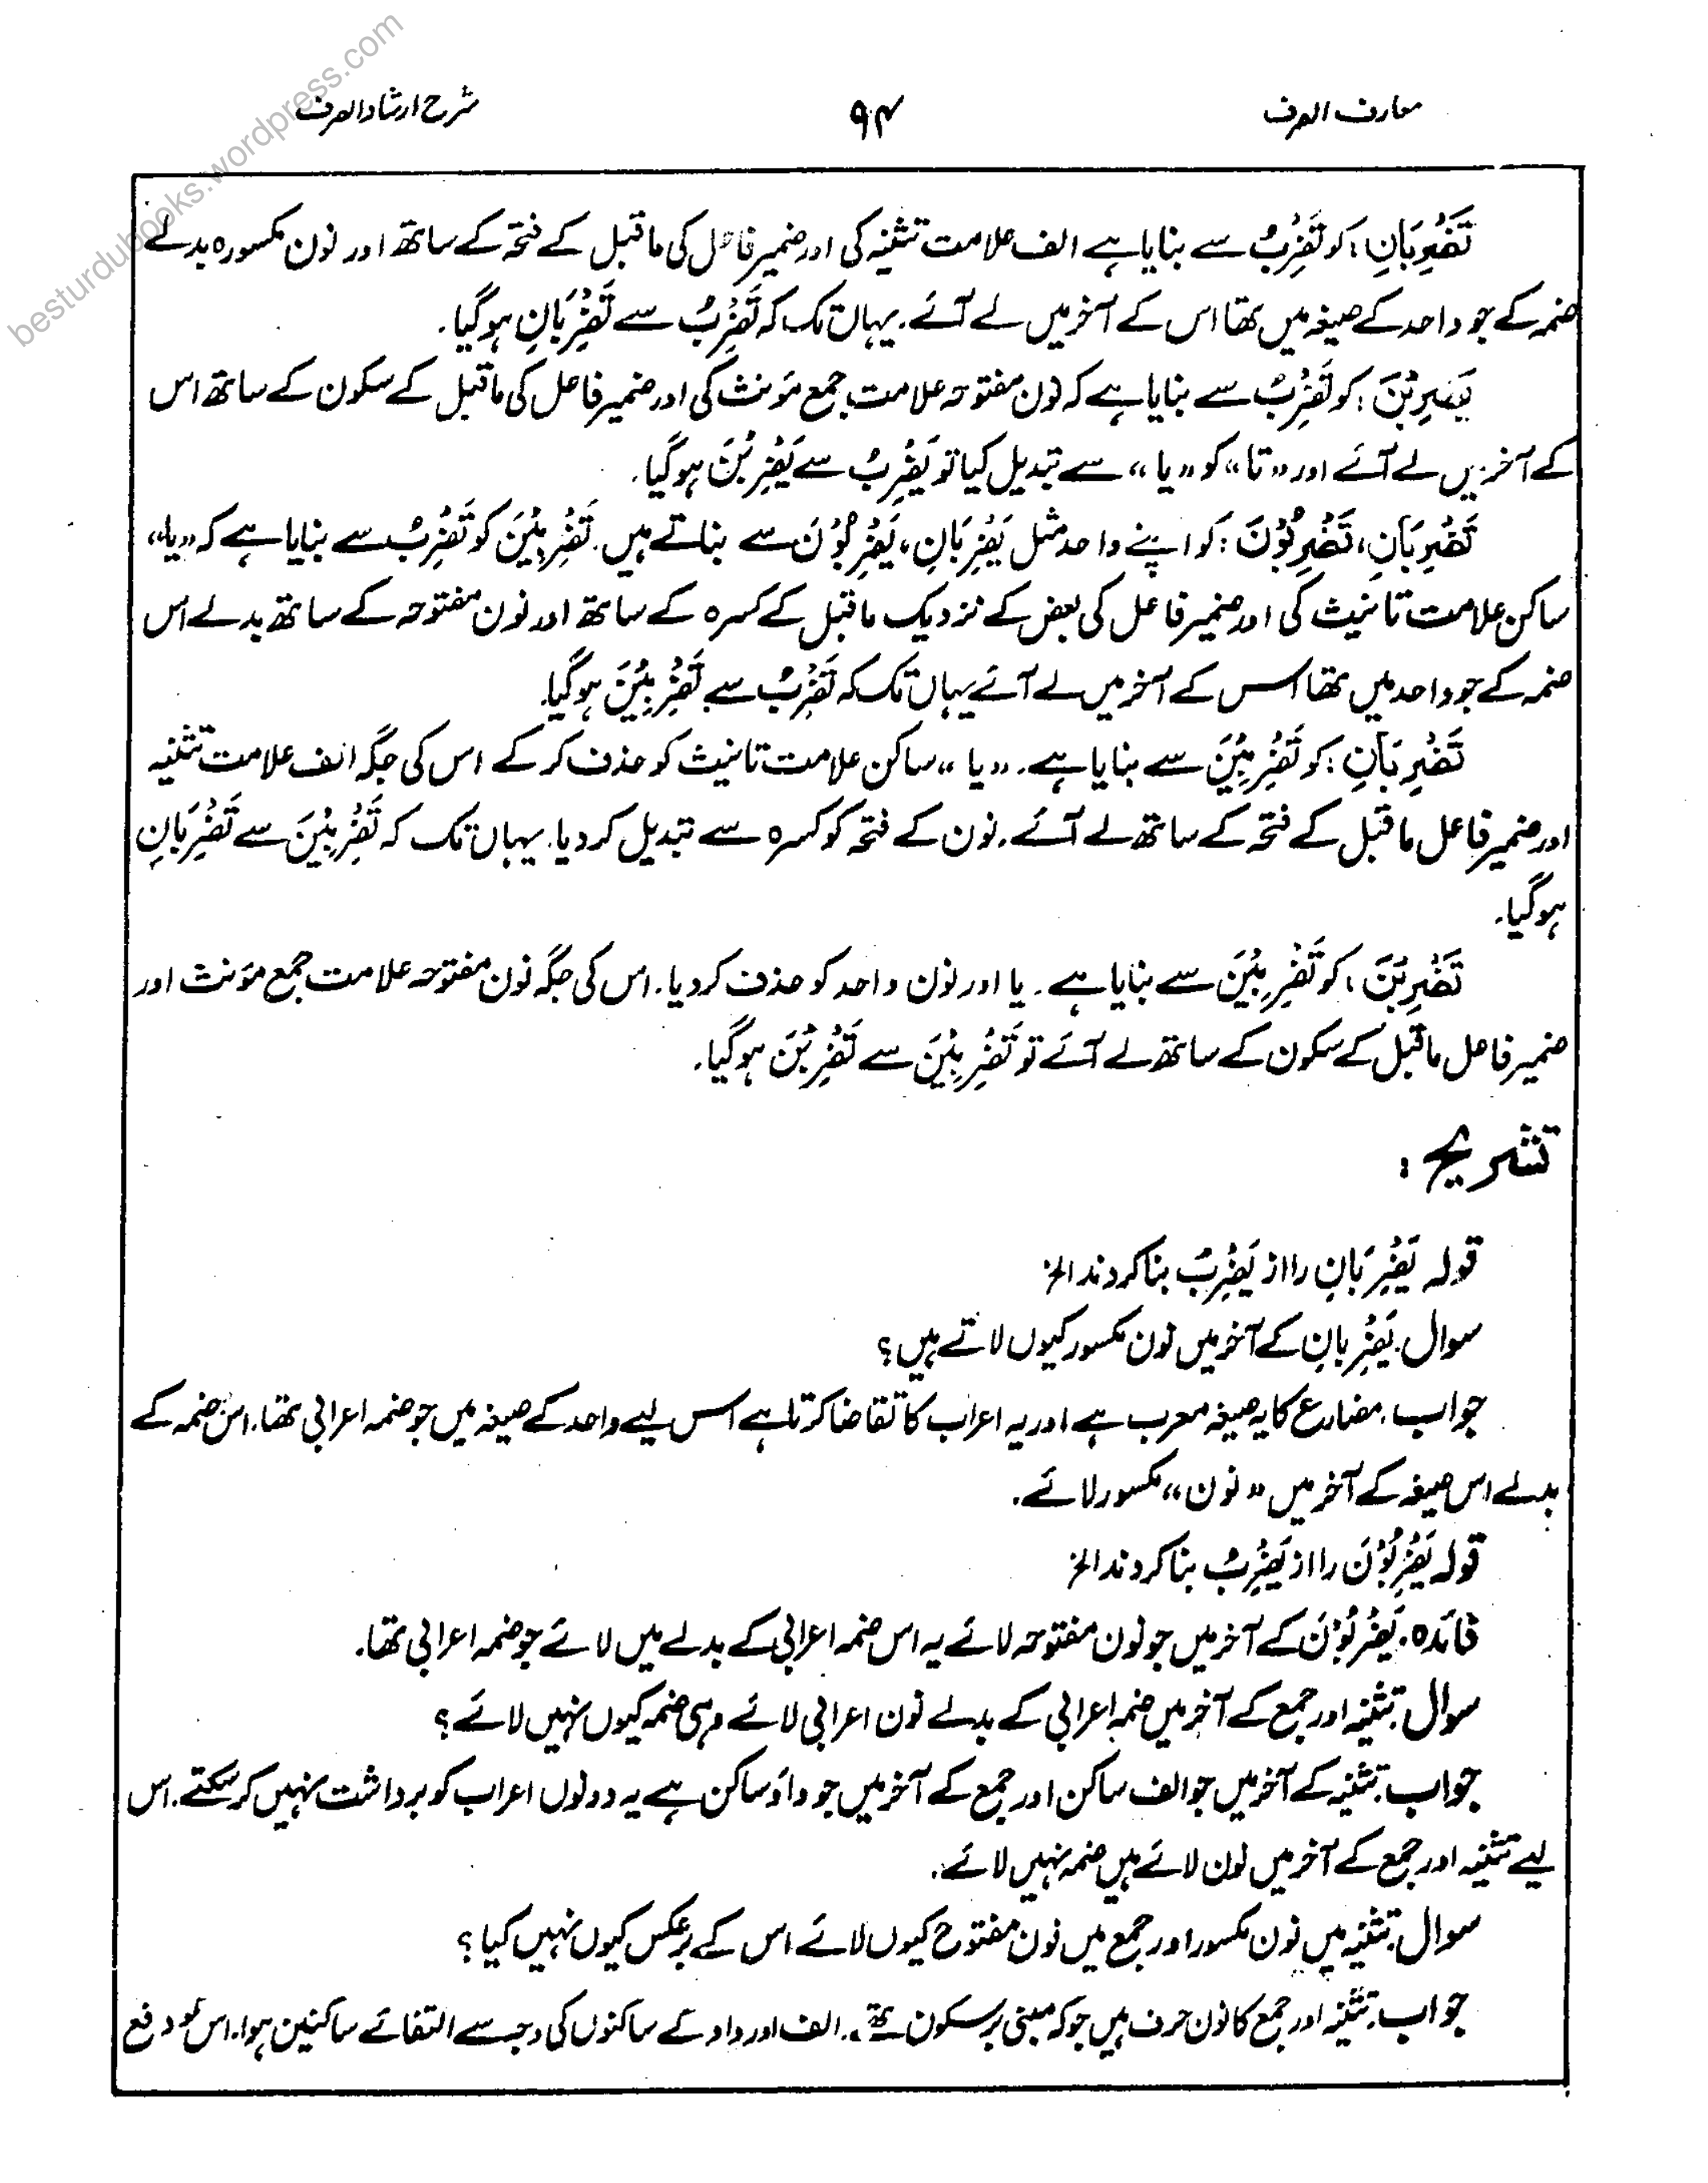 معارف الصرف
۹۴
شرح ارشاد الصرف
تَضْرِبَانِ: کو تَضْرِبُ سے بنایا ہے الف علامت تثنیہ کی اور ضمیر فاعل کی ماقبل کے فتحہ کے ساتھ اور نون مکسورہ بدلے
ضمہ کے جو واحد کے صیغہ میں تھا اس کے آخر میں لے آئے۔ یہاں تک کہ تَضْرِبُ سے تَضْرِبَانِ ہوگیا۔
يَضْرِبْنَ: کو تَضْرِبُ سے بنایا ہے کہ نون مفتوحہ علامت جمع مؤنث کی اور ضمیر فاعل کی ماقبل کے سکون کے ساتھ اس
کے آخر میں لے آئے اور ”تا“ کو ”یا“ سے تبدیل کیا تو يَضْرِبُ سے يَضْرِبْنَ ہوگیا۔
تَضْرِبَانِ، تَضْرِبُوْنَ: کو اپنے واحد مثل يَضْرِبَانِ، يَضْرِبُوْنَ سے بناتے ہیں۔ تَضْرِبِيْنَ کو تَضْرِبُ سے بنایا ہے کہ ”یا“
ساکن علامت تانیث کی اور ضمیر فاعل کی بعض کے نزدیک ماقبل کے کسرہ کے ساتھ اور نون مفتوحہ کے ساتھ بدلے اس
ضمہ کے جو واحد میں تھا اس کے آخر میں لے آئے یہاں تک کہ تَضْرِبُ سے تَضْرِبِيْنَ ہوگیا۔
تَضْرِبَانِ: کو تَضْرِبِيْنَ سے بنایا ہے۔ ”یا“ ساکن علامت تانیث کو حذف کر کے اس کی جگہ الف علامت تثنیہ
اور ضمیر فاعل ماقبل کے فتحہ کے ساتھ لے آئے۔ نون کے فتحہ کو کسرہ سے تبدیل کر دیا۔ یہاں تک کہ تَضْرِبِيْنَ سے تَضْرِبَانِ
ہوگیا۔
تَضْرِبْنَ: کو تَضْرِبِيْنَ سے بنایا ہے۔ یا اور نون واحد کو حذف کر دیا۔ اس کی جگہ نون مفتوحہ علامت جمع مؤنث اور
ضمیر فاعل ماقبل کے سکون کے ساتھ لے آئے تو تَضْرِبِيْنَ سے تَضْرِبْنَ ہوگیا۔
تشریح:
قولہ يَضْرِبَانِ را از يَضْرِبُ بنا کردند الخ
سوال۔ يَضْرِبَانِ کے آخر میں نون مکسور کیوں لاتے ہیں؟
جواب۔ مضارع کا یہ صیغہ معرب ہے اور یہ اعراب کا تقاضا کرتا ہے اس لیے واحد کے صیغہ میں جو ضمہ اعرابی تھا۔ اس ضمہ کے
بدلے اس صیغہ کے آخر میں ”نون“ مکسور لائے۔
قولہ يَضْرِبُوْنَ را از يَضْرِبُ بنا کردند الخ
فائدہ۔ يَضْرِبُوْنَ کے آخر میں جو نون مفتوحہ لائے یہ اس ضمہ اعرابی کے بدلے میں لائے جو ضمہ اعرابی تھا۔
سوال۔ تثنیہ اور جمع کے آخر میں ضمہ اعرابی کے بدلے نون اعرابی لائے وہی ضمہ کیوں نہیں لائے؟
جواب۔ تثنیہ کے آخر میں جو الف ساکن اور جمع کے آخر میں جو واؤ ساکن ہے یہ دونوں اعراب کو برداشت نہیں کر سکتے۔ اس
لیے تثنیہ اور جمع کے آخر میں نون لائے ہیں ضمہ نہیں لائے۔
سوال۔ تثنیہ میں نون مکسور اور جمع میں نون مفتوح کیوں لائے اس کے برعکس کیوں نہیں کیا؟
جواب۔ تثنیہ اور جمع کا نون حرف ہیں جو کہ مبنی بر سکون تھے۔ الف اور واو کے ساکنوں کی وجہ سے التقائے ساکنین ہوا۔ اس کو دفع
besturdubooks.wordpress.com